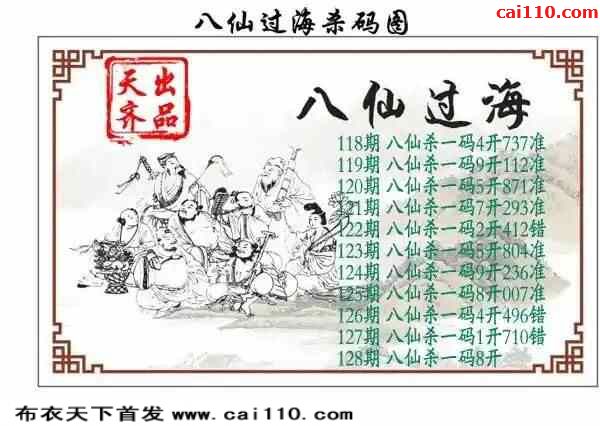 八仙过海杀码图
cai110.com
天齐
出品
八仙过海
118期 八仙杀一码4开737准
119期 八仙杀一码9开112准
120期 八仙杀一码5开871准
121期 八仙杀一码7开293准
122期 八仙杀一码2开412错
123期 八仙杀一码5开804准
124期 八仙杀一码9开236准
125期 八仙杀一码8开007准
126期 八仙杀一码4开496错
127期 八仙杀一码1开710错
128期 八仙杀一码8开
布衣天下首发 www.cai110.com